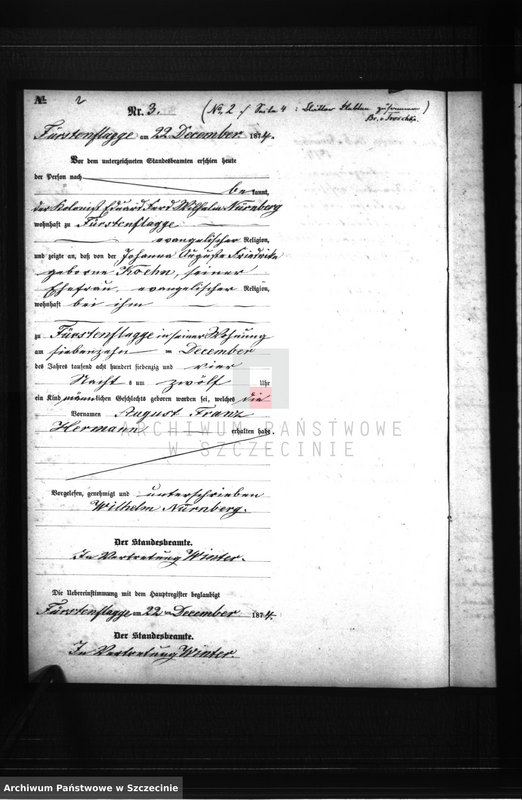 № 2
Nr. 3. (No 2 Seite 4 :
Fürstenflagge am 22 December 1874.
Vor dem unterzeichneten Standesbeamten erschien heute
der Person nach
bekannt,
der Kolonist Eduard Ferd Wilhelm Nürnberg
wohnhaft zu Fürstenflagge
evangelischer Religion,
und zeigte an, daß von der Johanna Auguste
geborne Koehn, seiner
Ehefrau, evangelischer Religion,
wohnhaft bei ihm
zu Fürstenflagge in seiner Wohnung
am siebenzehn December
des Jahres tausend acht hundert siebenzig und vier
Nachts um zwölf Uhr
ein Kind männlichen Geschlechts geboren worden sei, welches die
Vornamen August Franz
Hermann erhalten habe.
ARCHIWUM PAŃSTWOWE
W SZCZECINIE
Vorgelesen, genehmigt und unterschrieben
Wilhelm Nürnberg.
Der Standesbeamte.
In Vertretung Winter.
Die Uebereinstimmung mit dem Hauptregister beglaubigt
Fürstenflagge am 22 December 1874.
Der Standesbeamte.
In Vertretung Winter.
Archiwum Państwowe w Szczecinie